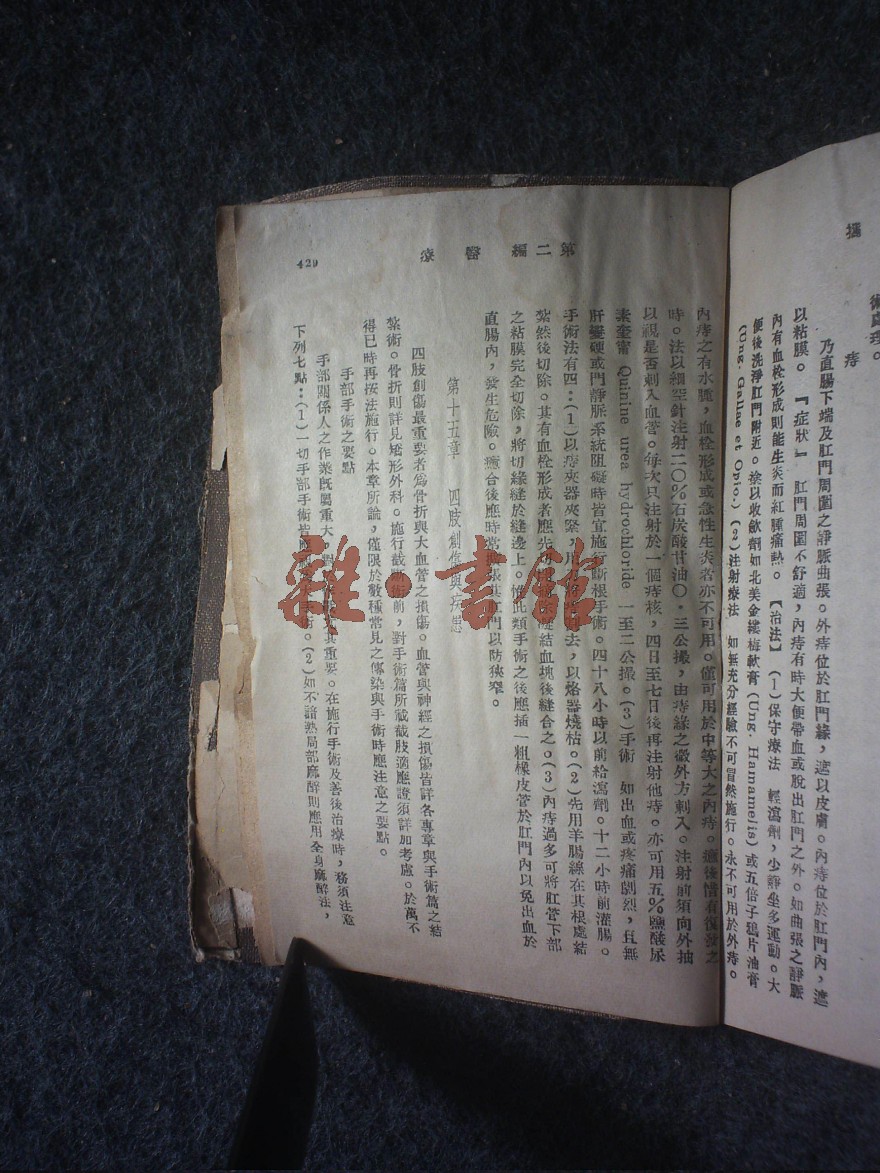 攝
術處理。
痔
乃直腸下端及肛門周圍之靜脈曲張。外痔位於肛門緣，遮以皮膚。內痔位於肛門內，遮
以粘膜。『症狀』 肛門周圍不舒適，內痔有時大便帶血或脫出肛門之外。如曲張之靜脈
內有血栓形成則能生炎而紅腫痛熱。【治法】 (1)保守療法 輕瀉劑，少靜坐多運動。大
便後洗淨肛門附近。搽以收歛劑如北美金縷梅軟膏(Ung. Hamamelis)或五倍子鴉片油膏
(Ung. Gallae et Opio.) (2)注射療法 如無充分經驗不可冒然施行。永不可用於外痔。
第二編 醫療
429
內痔之有水腫，血栓形成或急性生炎者亦不可用。僅可用於中等大之內痔。癒後惜有復發之
時。法以細空針注射二〇%石炭酸甘油〇．三公撮，由痔緣之微外方刺入。注射前須向外抽
以視是否刺入血管。每次只注射於一個痔核，四日至七日後再注射他痔。亦可用五%鹽酸尿
素奎甯 Quinine urea hydrochloride 一至二公撮。(3)手術 如出血或疼痛劇烈，且無
肝變硬或門靜脈系統阻礙時皆宜施行斷根手術。四十八小時以前給瀉劑。十二小時前灌腸。
手術法有四：(1)以痔夾器夾緊，用去，以烙器燒枯。(2)先用羊腸線在其根處結
紮然後切除。其有血栓形成者應先凝結血塊後縫合之。(3)內痔過多可將肛管下部
之粘膜完全切除，將切緣縫於縫邊上。惟此類手術之後應插一粗橡皮管於肛門內以免出血於
直腸內，發生危險。癒合後應時常擴張其肛門以防狹窄。
第十五章 四肢創傷與疾患
四肢創傷最重要者爲骨折與大血管之損傷。血管與神經之損傷皆詳各專章與手術篇之結
紮術。骨折則詳見矯形外科。施行截斷術前，對手術篇所載截肢適應證須詳加考慮。於萬不
得已時再按法施行。本章所論，僅限於數種常見之傳染與手術時應注意之要點。
手部手術之要點
手部關係人之作業旣屬重大，對其重要。在施行手術及善後治療時，務須注意
下列七點：(1)一切手部手術皆應術。(2)如不諳熟局部麻醉則應用全身麻醉法，
雜·書館